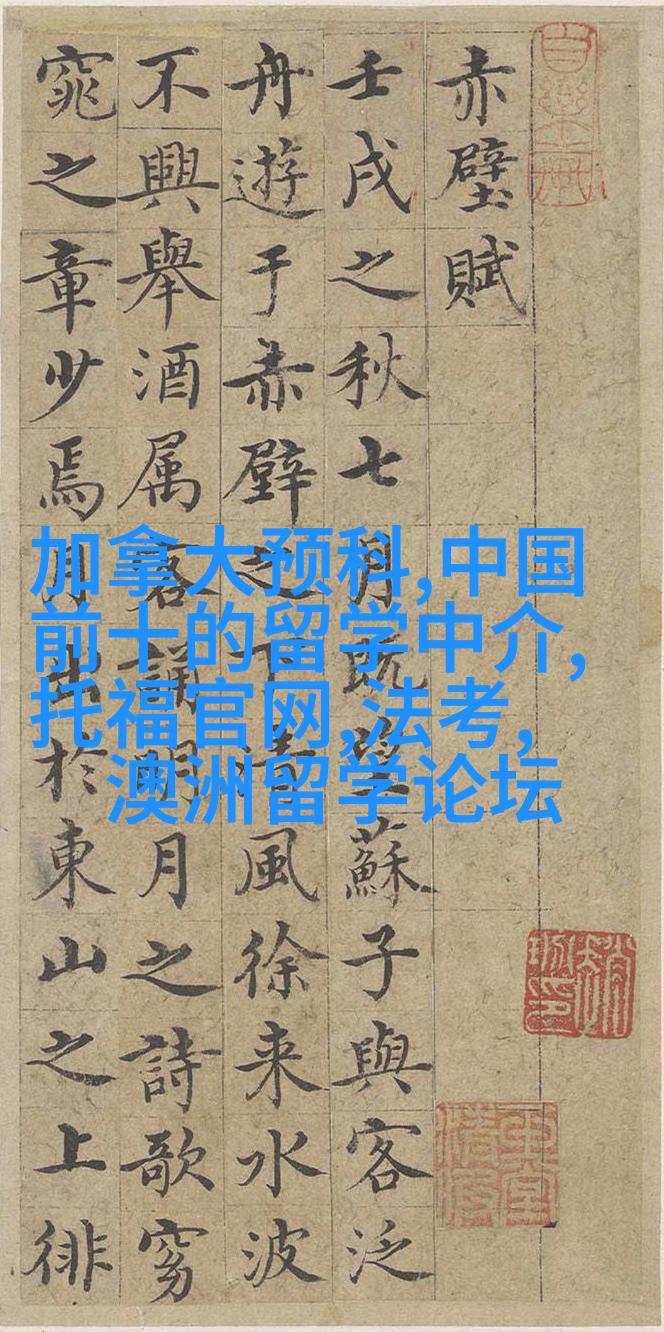 赤壁賦
壬戌之秋七月既望蘇子與客泛
舟遊于赤壁之下清風徐来水波
不興舉酒属客誦明月之詩歌窈
窕之章少焉月出於東山之上徘
加拿大预科,中国
前十的留学中介,
托福官网,法考,
澳洲留学论坛